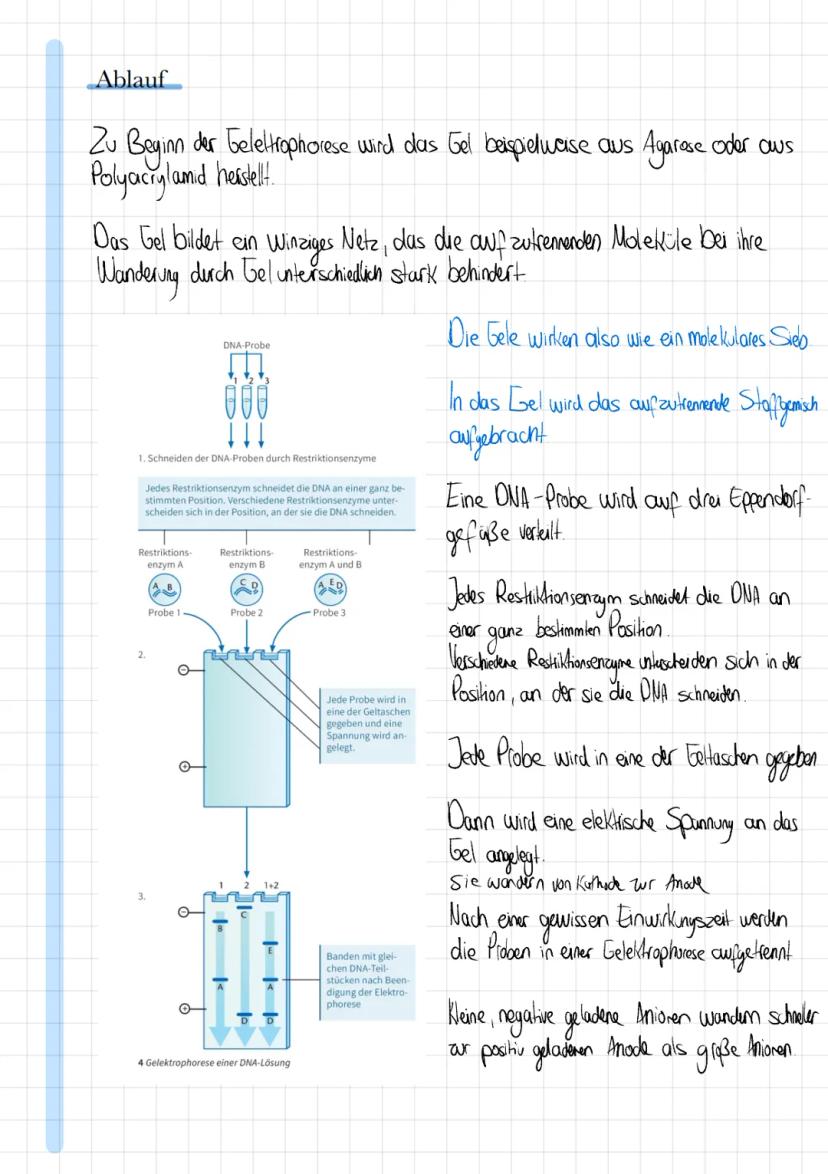 Ablauf
Zu Beginn der Gelelktrophorese wird das Gel beispielweise aus Agarose oder aus
Polyacrylamid herstellt.
Das Gel bildet ein winziges Netz, das die aufzutrennenden Moleküle bei ihre
Wanderung durch Gel unterschiedlich stark behindert
Die Gele wirken also wie ein molekulares Sieb
In das Gel wird das aufzutrennende Stoffgemisch
aufgebracht
Eine DNA-Probe wird auf drei Eppendorf-
gefäße verteilt.
Jedes Restriktionsenzym schneidet die DNA an
einer ganz bestimmten Position.
Verschiedene Restriktionsenzyme unterscheiden sich in der
Position, an der sie die DNA schneiden.
Jede Probe wird in eine der Geltaschen gegeben
Dann wird eine elektrische Spannung an das
Gel angelegt.
Sie wandern von Kathode zur Anode
Nach einer gewissen Einwirkungszeit werden
die Proben in einer Gelelektrophorese aufgetrennt
Kleine, negative geladene Anionen wandern schneller
zur positiv geladenen Anode als große Anionen
DNA-Probe
1 2 3
1. Schneiden der DNA-Proben durch Restriktionsenzyme
Jedes Restriktionsenzym schneidet die DNA an einer ganz be-
stimmten Position. Verschiedene Restriktionsenzyme unter-
scheiden sich in der Position, an der sie die DNA schneiden.
Restriktions-
enzym A
Restriktions-
enzym B
Restriktions-
enzym A und B
A B
C D
A E D
Probe 1
Probe 2
Probe 3
2.
−
+
Jede Probe wird in
eine der Geltaschen
gegeben und eine
Spannung wird an-
gelegt.
3.
1 2 1+2
−
C
B
E
A A
+
D D
Banden mit glei-
chen DNA-Teil-
stücken nach Been-
digung der Elektro-
phorese
4 Gelektrophorese einer DNA-Lösung